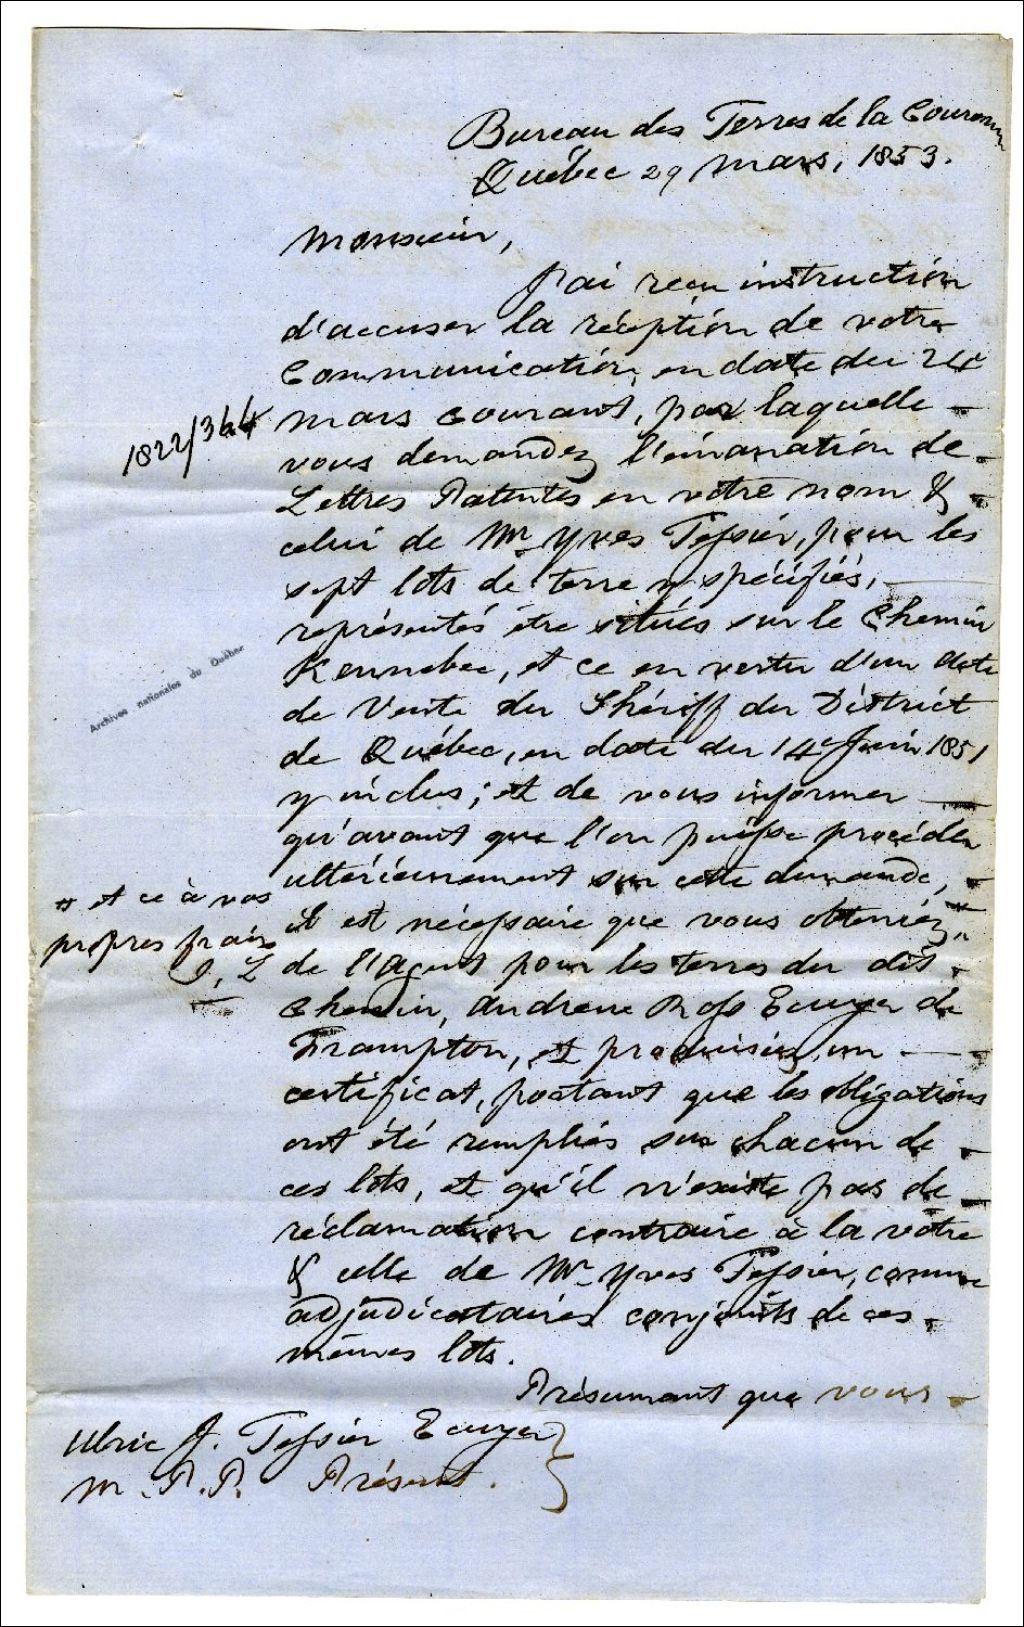 Bureau des Terres de la Couronne
Québec 29 Mars, 1853.
Monsieur,
J'ai reçu instruction
d'accuser la réception de votre
Communication, en date du 24
Mars courant, par laquelle
1822/364
vous demandez l'émanation de
Lettres Patentes en votre nom &
celui de Mr Yves Tessier, pour les
sept lots de terre y spécifiés,
représentés être situés sur le Chemin
Kennebec, et ce en vertu d'un Acte
de Vente du Shériff du District
de Québec, en date du 14e Juin 1851
y inclus; et de vous informer
qu'avant que l'on puisse procéder
ultérieurement sur cette demande,
il est nécessaire que vous obteniez
# et ce à vos
propres frais
de l'Agent pour les terres du dit
Chemin, Andrew Ross Ecuyer de
Frampton, et produisiez, un
certificat, portant que les obligations
ont été remplies sur chacun de
ces lots, et qu'il n'existe pas de
réclamation contraire à la vôtre
& celle de Mr Yves Tessier, comme
adjudicataires conjoints de ces
mêmes lots.
Présumant que vous
Ulric J. Tessier Ecuyer
M.P.P. Présent.
Archives nationales du Québec